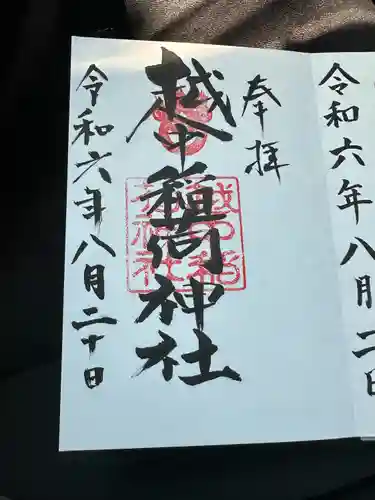 奉拝
越中稲荷神社
越中稲荷神社
令和六年八月二十日
令和六年八月二日